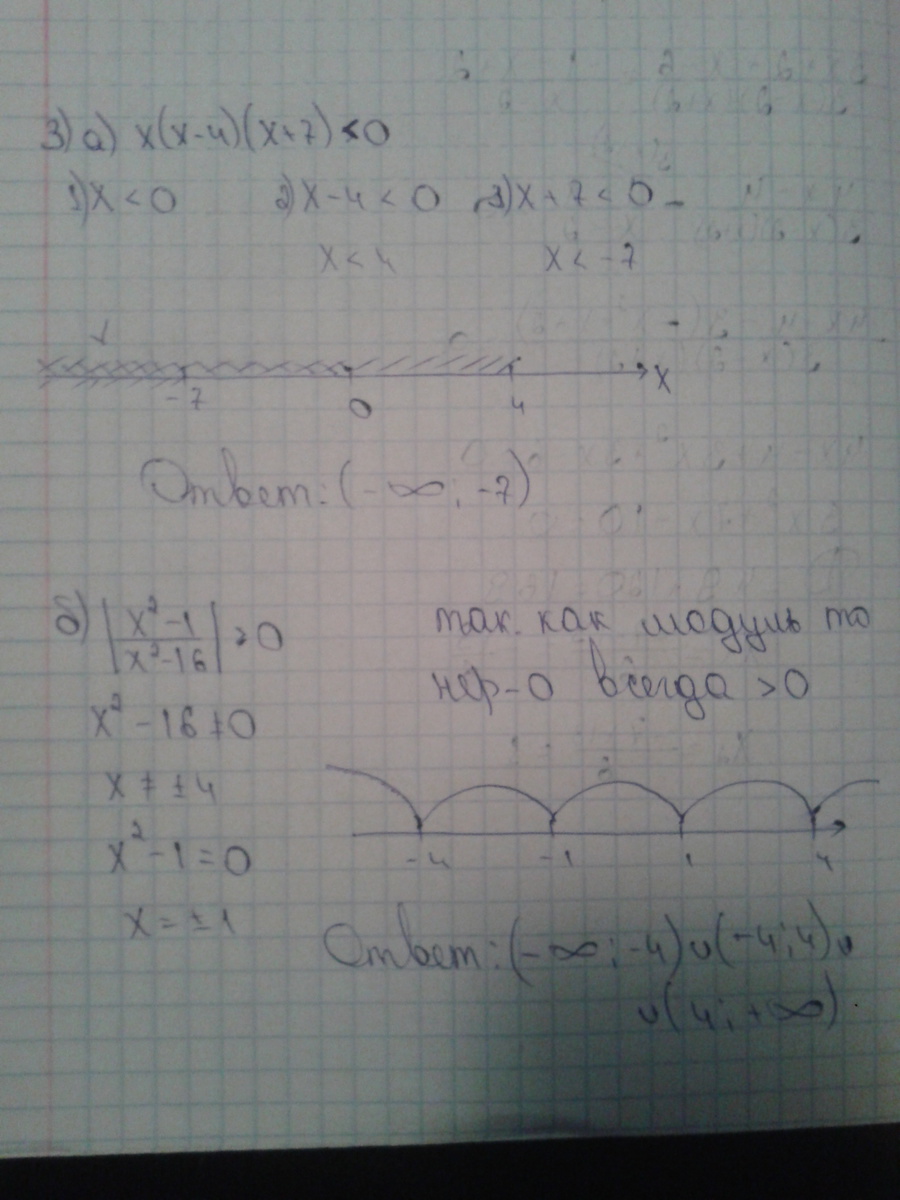 3) а) x(x-4)(x+7)<0
1) x<0 2) x-4<0 3) x+7<0
x<4 x<-7
-7 0 4 x
Ответ: (-∞; -7)
б) |x²-1/x²-16|>0 так как модуль то
нер-0 всегда >0
x²-16≠0
x≠±4
x²-1=0
-4 -1 1 4
x=±1
Ответ: (-∞; -4)∪(-4; 4)∪
∪(4; +∞).